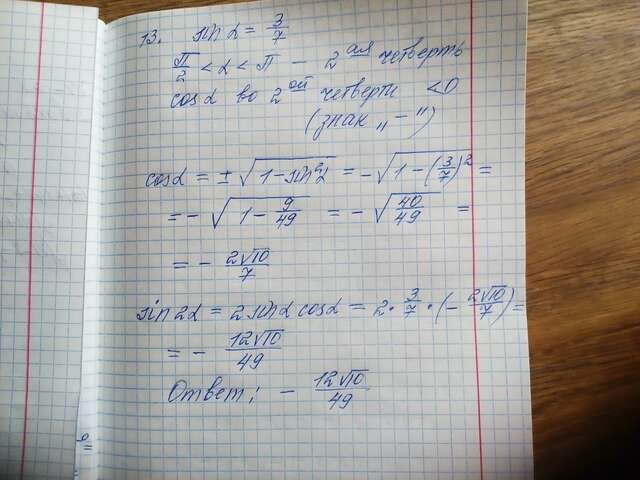 13. sin α = 3/7
π/2 < α < π - 2 ая четверть
cos α во 2 ой четверти < 0
(знак „ - ")
cos α = ± √(1 - sin²α) = - √(1 - (3/7)²) =
= - √(1 - 9/49) = - √(40/49) =
= - 2√10/7
sin 2α = 2 sin α cos α = 2 · 3/7 · (- 2√10/7) =
= - 12√10/49
Ответ: - 12√10/49